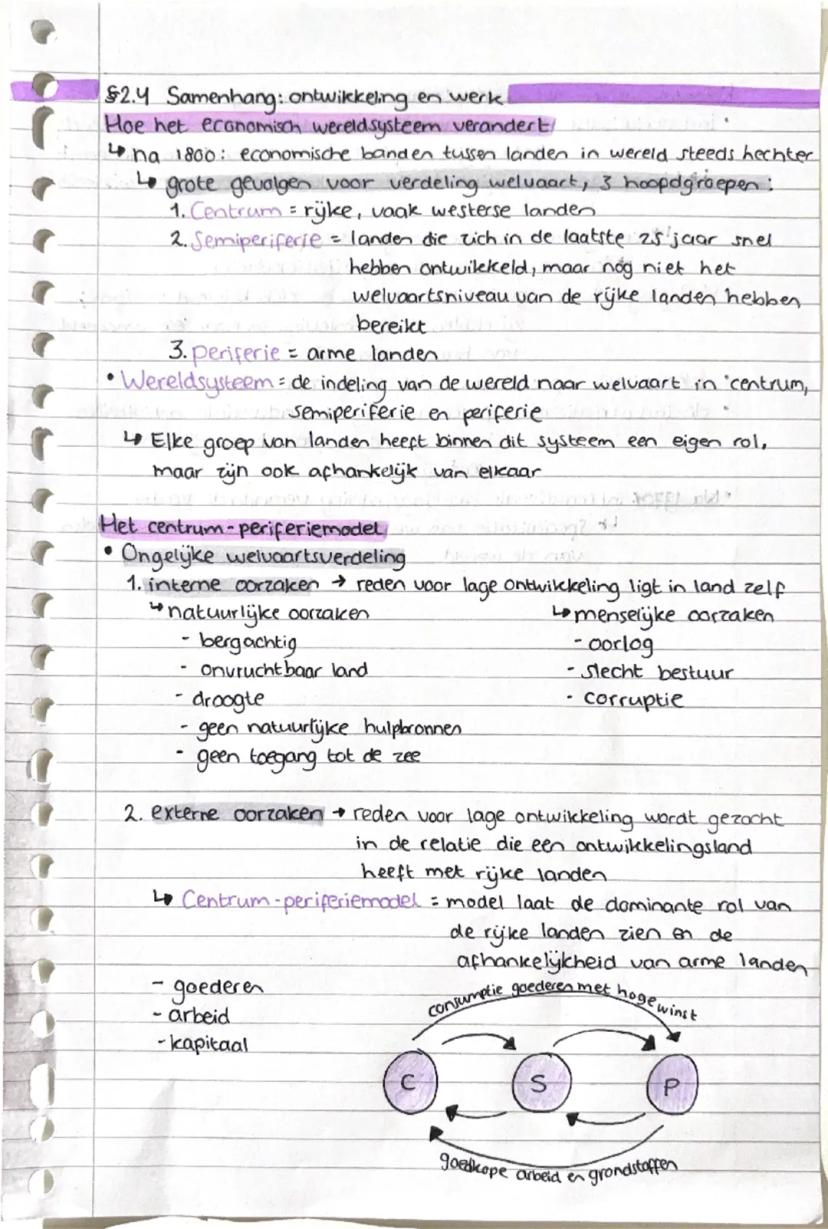 §2.4 Samenhang: ontwikkeling en werk
Hoe het economisch wereldsysteem verandert
↳ na 1800: economische banden tussen landen in wereld steeds hechter
↳ grote gevolgen voor verdeling welvaart, 3 hoopdgroepen:
1. Centrum = rijke, vaak westerse landen
2. Semiperiferie = landen die zich in de laatste 25 jaar snel
hebben ontwikkeld, maar nog niet het
welvaartsniveau van de rijke landen hebben
bereikt
3. periferie = arme landen
• Wereldsysteem = de indeling van de wereld naar welvaart in centrum,
semiperiferie en periferie
↳ Elke groep van landen heeft binnen dit systeem een eigen rol,
maar zijn ook afhankelijk van elkaar
Het centrum-periferiemodel
• Ongelijke welvaartsverdeling
1. interne oorzaken → reden voor lage ontwikkeling ligt in land zelf
↳ natuurlijke oorzaken ↳ menselijke oorzaken
- bergachtig - oorlog
- onvruchtbaar land - slecht bestuur
- droogte - corruptie
- geen natuurlijke hulpbronnen
- geen toegang tot de zee
2. externe oorzaken → reden voor lage ontwikkeling wordt gezocht
in de relatie die een ontwikkelingsland
heeft met rijke landen
↳ Centrum-periferiemodel = model laat de dominante rol van
de rijke landen zien en de
afhankelijkheid van arme landen
- goederen
- arbeid
- kapitaal
consumptie goederen met hoge winst
C S P
goedkope arbeid en grondstoffen